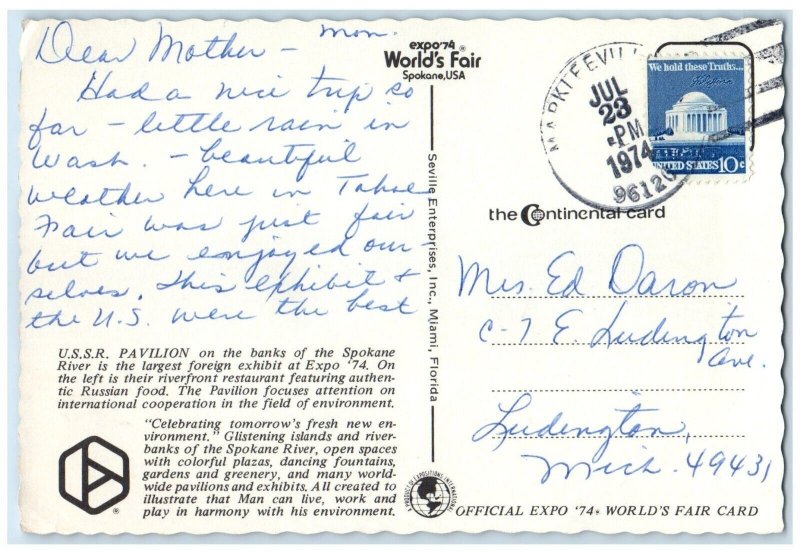 Mon.
Dear Mother –
Had a nice trip so
far – little rain in
Wash. – beautiful
weather here in Tahoe
Fair was just fair
but we enjoyed our
selves. This exhibit +
the U.S. were the best
U.S.S.R. PAVILION on the banks of the Spokane
River is the largest foreign exhibit at Expo '74. On
the left is their riverfront restaurant featuring authen-
tic Russian food. The Pavilion focuses attention on
international cooperation in the field of environment.
"Celebrating tomorrow's fresh new en-
vironment." Glistening islands and river-
banks of the Spokane River, open spaces
with colorful plazas, dancing fountains,
gardens and greenery, and many world-
wide pavilions and exhibits. All created to
illustrate that Man can live, work and
play in harmony with his environment.
expo'74®
World's Fair
Spokane, USA
Seville Enterprises, Inc., Miami, Florida
MARKLEEVILL
JUL
23
PM
1974
96120
We hold these Truths...
UNITED STATES 10c
the Continental card
Mrs. Ed Daron
C-7 E Ludington
Ave.
Ludington,
Mich. 49431
OFFICIAL EXPO '74® WORLD'S FAIR CARD